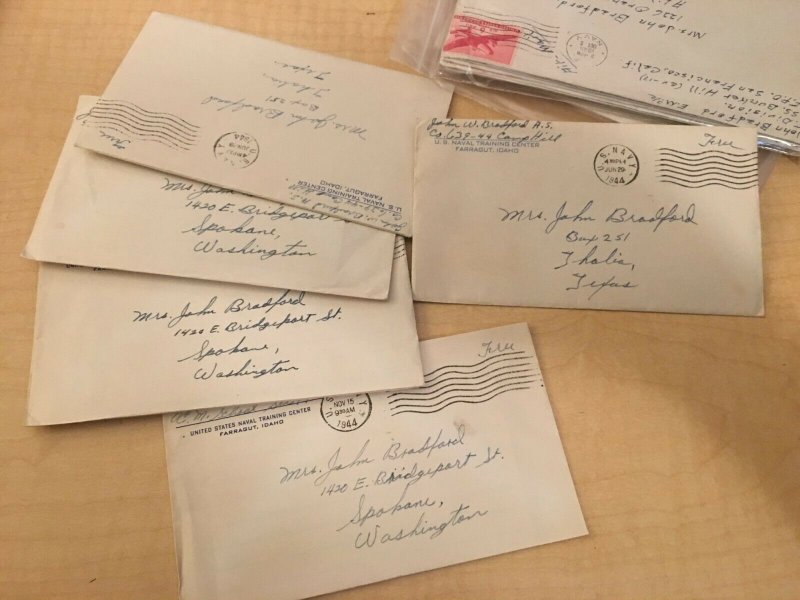 Mrs. John Bradford
Box 251
Thalia,
Texas
Free
U.S. NAVAL TRAINING CENTER
FARRAGUT, IDAHO
Mrs. John
1420 E. Bridgeport
Spokane,
Washington
Mrs. John Bradford
1420 E. Bridgeport St.
Spokane,
Washington
UNITED STATES NAVAL TRAINING CENTER
FARRAGUT, IDAHO
U.S. NAVY
NOV 15
930AM
1944
Free
Mrs. John Bradford
1420 E. Bridgeport St.
Spokane,
Washington
John W. Bradford A.S.
Co. 639-44 Camp Hill
U. S. NAVAL TRAINING CENTER
FARRAGUT, IDAHO
U.S. NAVY
JUN 29
1944
Free
Mrs. John Bradford
Box 251
Thalia,
Texas
Mrs. John Bradford
1236
Air Mail
NAVY
John Bradford
Division
Bunker Hill (CV-17)
F.P.O. San Francisco, Calif.